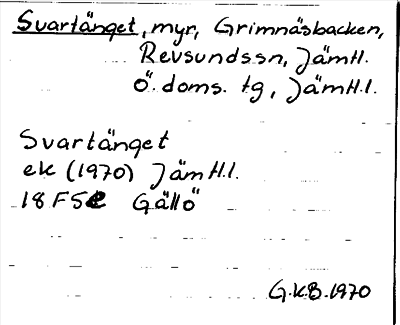 Svartänget, myr, Grimnäsbacken,
Revsundssn, Jämtl.
Ö. doms. tg, Jämtl.l.
Svartänget
ek (1970) Jämtl.l.
18 F5e Gällö
G.K.B. 1970